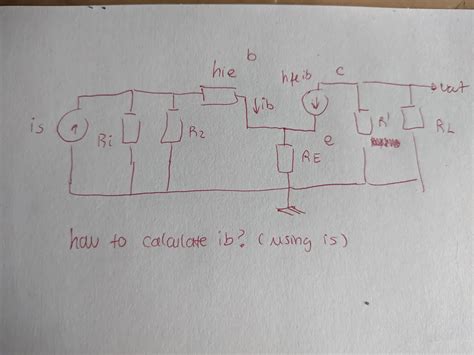 b
hie
hfeib
c
ib
vout
is
Ri
R2
R'
RL
e
RE
how to calculate ib? (using is)